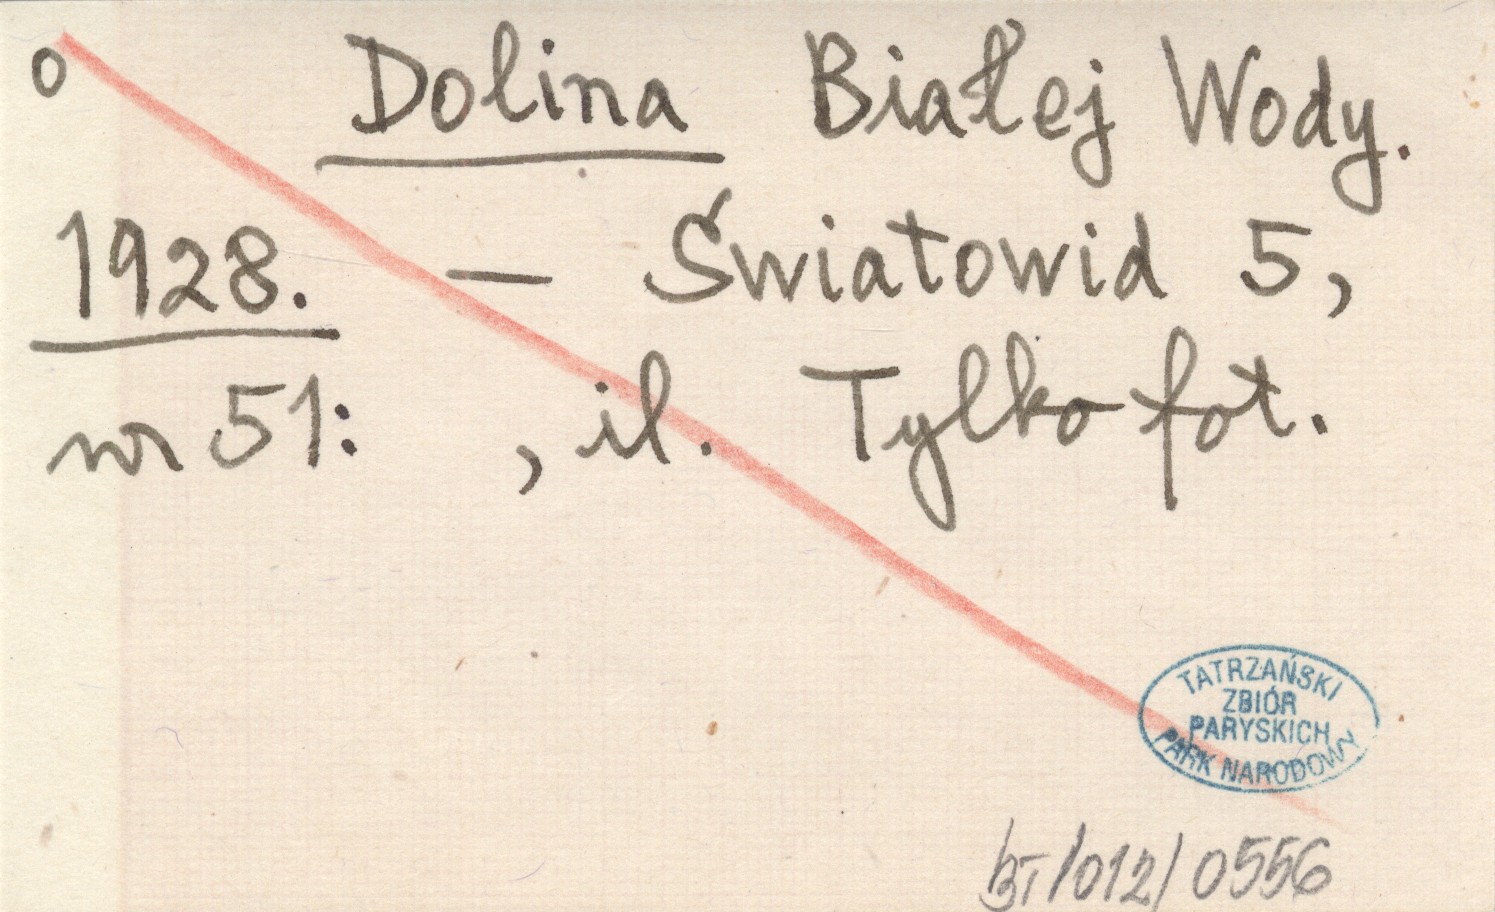 o Dolina Białej Wody.
1928. — Światowid 5,
nr 51: , il. Tylko fot.
TATRZAŃSKI
ZBIÓR
PARYSKICH
PARK NARODOWY
BT/012/0556